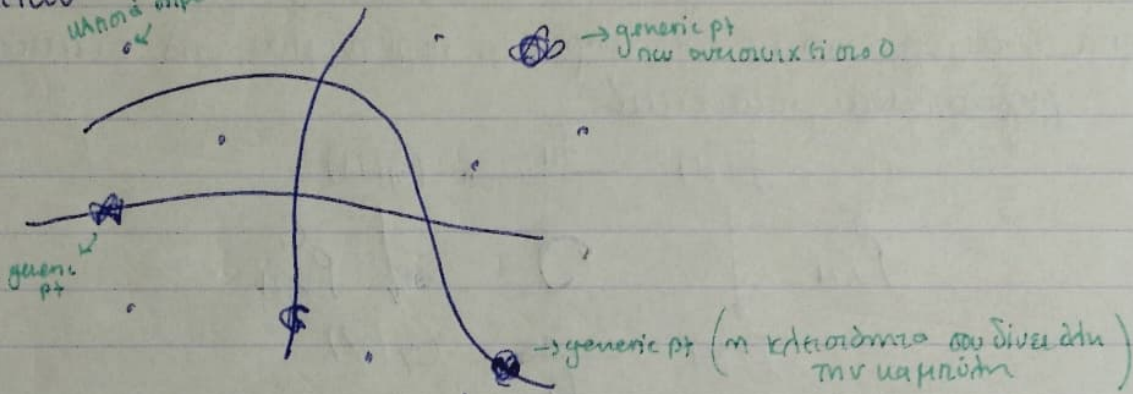 κλειστά σημ
→ generic pt
που αντιστοιχεί στο 0
generic
pt
→ generic pt (η κλειστότητα σου δίνει όλη
την καμπύλη)